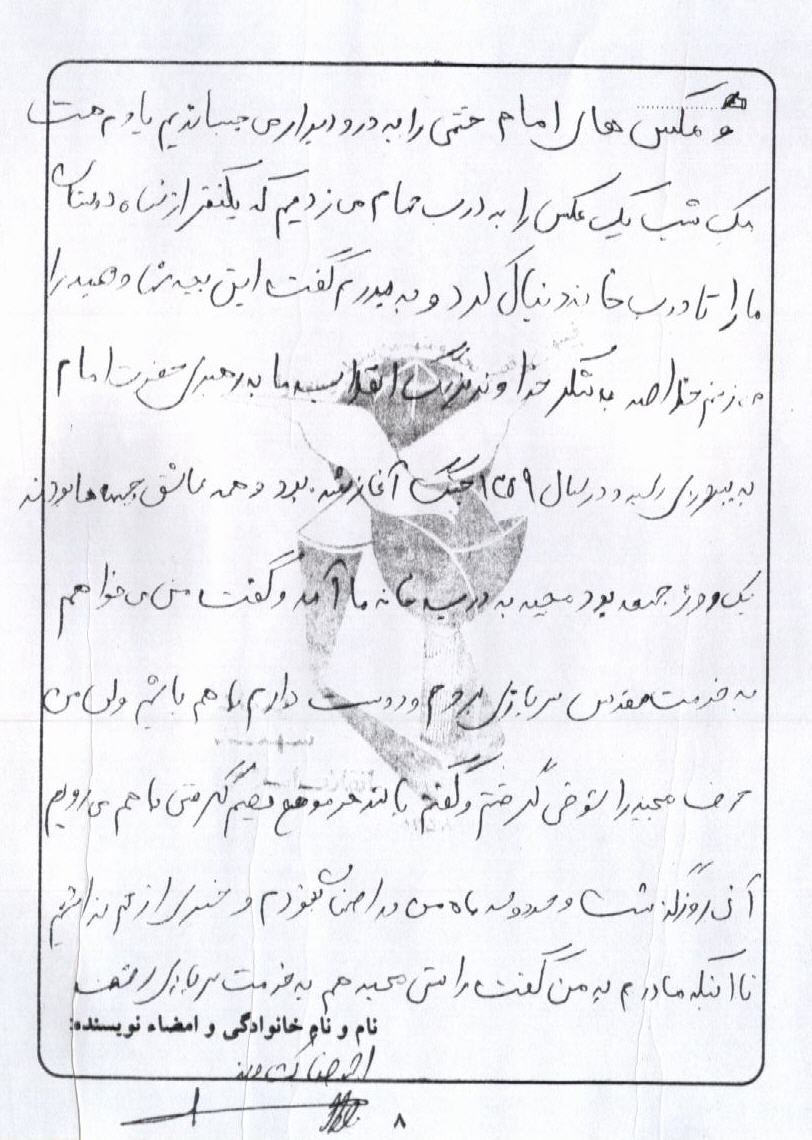 و عکس های امام خمینی را به در و دیوار می چسباندیم یادم هست
یک شب یک عکس را به درب حمام می زدیم که یکنفر از
ما را تا درب خانه دنبال کرد و به پدرم گفت این بچه شما و مجید را
می زنم به شکر خداوند بزرگ انقلاب ما به رهبری حضرت امام
به پیروزی رسید و در سال ۱۳۵۹ جنگ آغاز شده بود و همه عاشق جبهه ها بودند
یک روز جمعه بود مجید به درب خانه ما آمد و گفت من می خواهم
به خدمت مقدس سربازی بروم و دوست دارم با هم باشیم ولی من
حرف مجید را شوخی گرفتم و گفتم باشد هر موقع تصمیم گرفتی با هم می رویم
آن روز گذشت و حدود ماه من در اصفهان بودم و خبری از هم نداشتیم
تا اینکه مادرم به من گفت راستی مجید هم به خدمت سربازی رفت
نام و نام خانوادگی و امضاء نویسنده:
۸